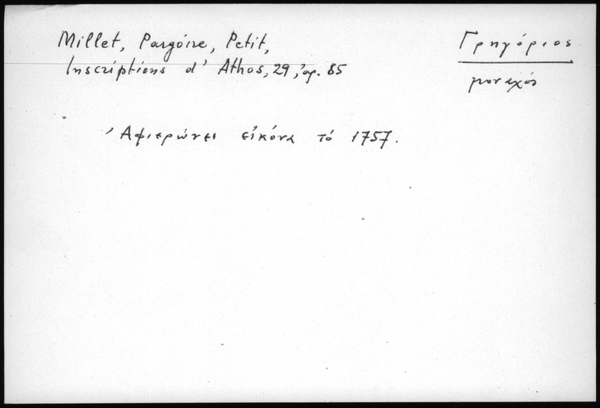 Millet, Pargoire, Petit,
Inscriptions d' Athos, 29, ἀρ. 85
Γρηγόριος
μοναχός
Ἀφιερώνει εἰκόνα τό 1757.